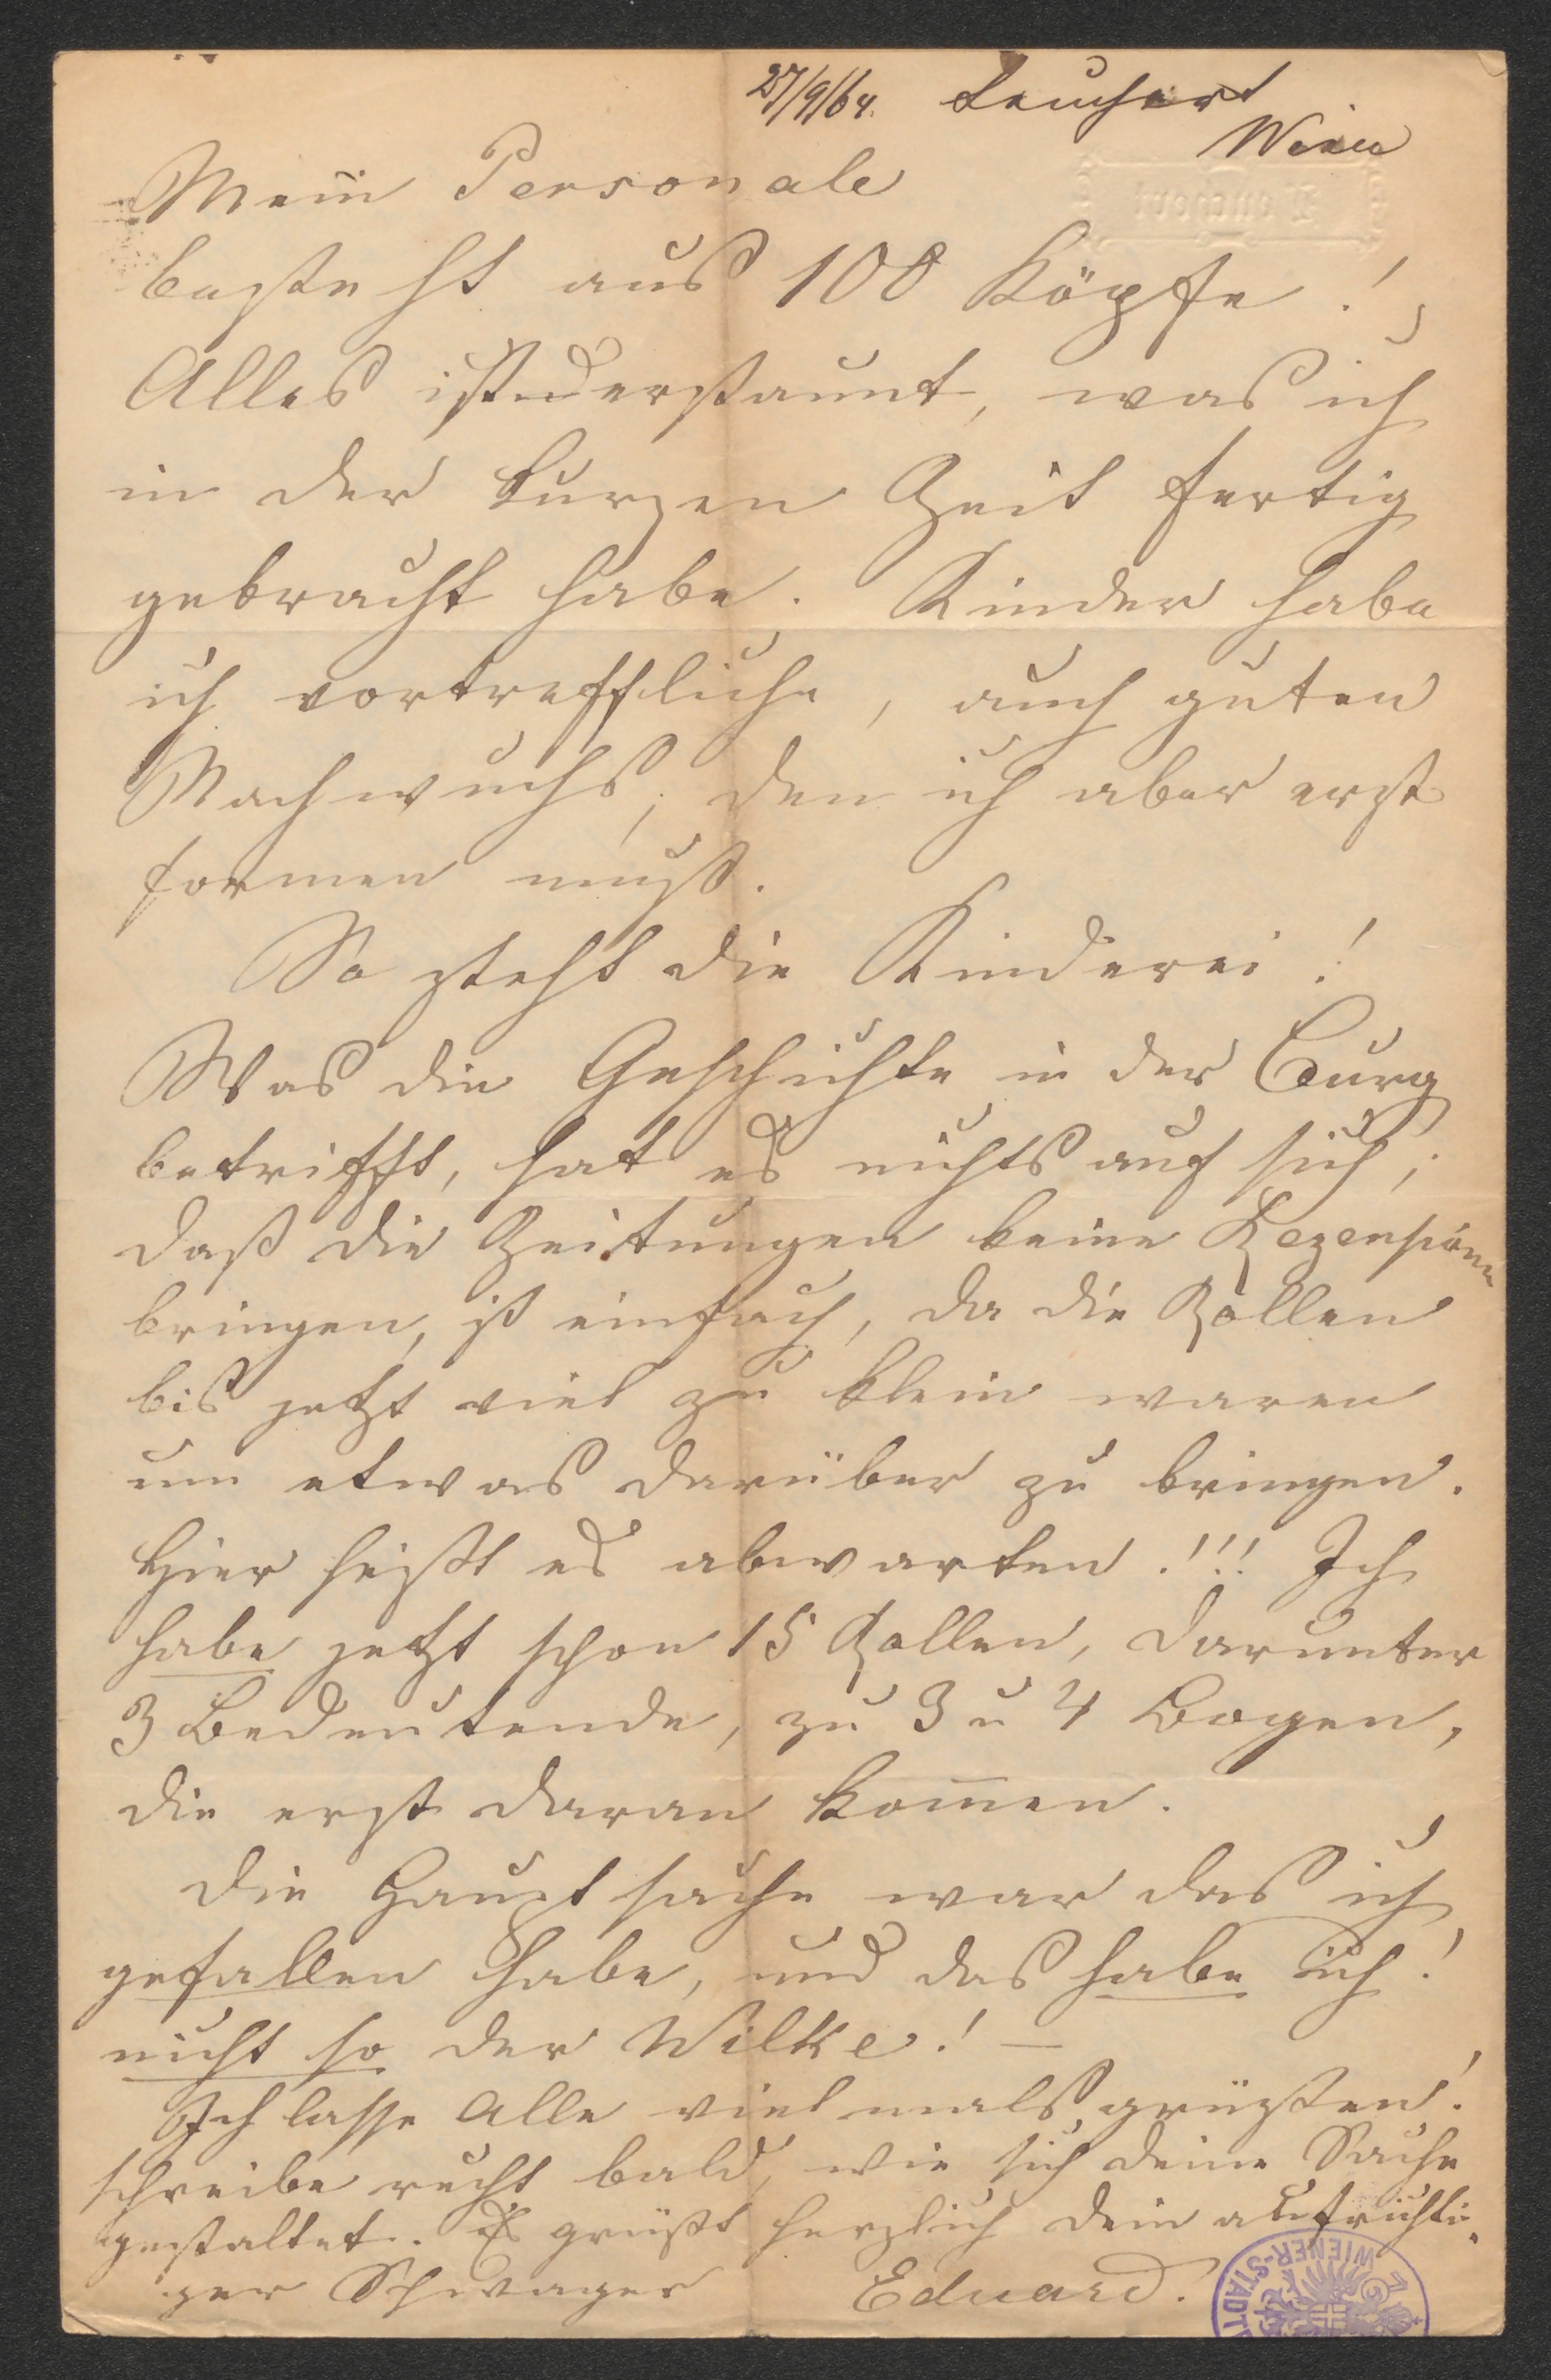 27/9/64. Leuchert
Wien
Mein Personale
besteht aus 100 Köpfe!
Alles ist erstaunt, was ich
in der kurzen Zeit fertig
gebracht habe. Kinder habe
ich vortreffliche, auch guten
Nachwuchs, den ich aber erst
formen muß.
So steht die Kinderei!
Was die Geschichte in der Burg
betrifft, hat es nichts auf sich;
daß die Zeitungen keine Rezensionen
bringen, ist einfach, da die Rollen
bis jetzt viel zu klein waren
um etwas darüber zu bringen.
Hier heißt es abwarten!!! Ich
habe jetzt schon 15 Rollen, darunter
3 Bedeutende, zu 3 u 4 Bogen,
die erst daran kom̅en.
Die Hauptsache war das ich
gefallen habe, und das habe ich!
nicht so der Wilke! —
Ich lasse Alle vielmals grüßen!
schreibe recht bald, wie sich deine Sache
gestaltet. Es grüßt herzlich dein aufrichti-
ger Schwager Eduard.
WIENER-STADT